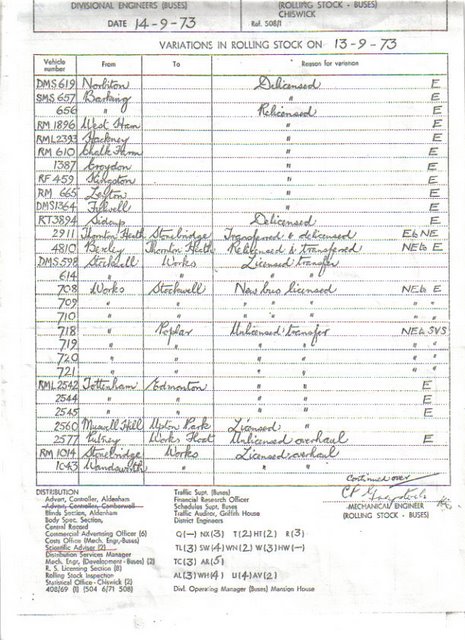 DIVISIONAL ENGINEERS (BUSES) (ROLLING STOCK - BUSES)
CHISWICK
DATE 14-9-73 Ref. 508/1
VARIATIONS IN ROLLING STOCK ON 13-9-73
Vehicle number From To Reason for variation
DMS 619 Norbiton Delicensed E
SMS 657 Barking " E
656 " Relicensed E
RM 1896 West Ham " E
RML 2393 Hackney " E
RM 610 Chalk Farm " E
1387 Croydon " E
RF 459 Kingston " E
RM 665 Leyton " E
DMS 1364 Fulwell " E
RT 3894 Sidcup Delicensed E
2911 Thornton Heath Stonebridge Transferred & delicensed E to NE
4810 Bexley Thornton Heath Relicensed & transferred NE to E
DMS 598 Stockwell Works Licensed transfer
614 " " "
708 Works Stockwell New bus licensed NE to E
709 " " " " " "
710 " " " " " "
718 " Poplar Unlicensed transfer NE to SVS
719 " " " " " "
720 " " " " " "
721 " " " " " "
RML 2542 Tottenham Edmonton " " E
2544 " " " " E
2545 " " " " E
2560 Muswell Hill Upton Park Licensed "
2577 Putney Works Float Unlicensed overhaul E
RM 1014 Stonebridge Works Licensed overhaul
1043 Wandsworth " " "
Continued over
MECHANICAL ENGINEER
(ROLLING STOCK - BUSES)
DISTRIBUTION
Advert. Controller, Aldenham
Advert. Controller, Camberwell
Blinds Section, Aldenham
Body Spec. Section,
Central Record
Commercial Advertising Officer (6)
Costs Office (Mech. Engr.-Buses)
Scientific Adviser (2)
Distribution Services Manager
Mech. Engr. (Development - Buses) (2)
R. S. Licensing Section (8)
Rolling Stock Inspection
Statistical Office - Chiswick (2)
408/69 (1) (504 6/71 508)
Traffic Supt. (Buses)
Financial Research Officer
Schedules Supt. Buses
Traffic Auditor, Griffith House
District Engineers
Q(-) NX(3) T(2) HT(2) R(3)
TL(3) SW(4) WN(2) W(3) HW(-)
TC(3) AR(5)
AL(3) WH(4) U(4) AV(2)
Divl. Operating Manager (Buses) Mansion House